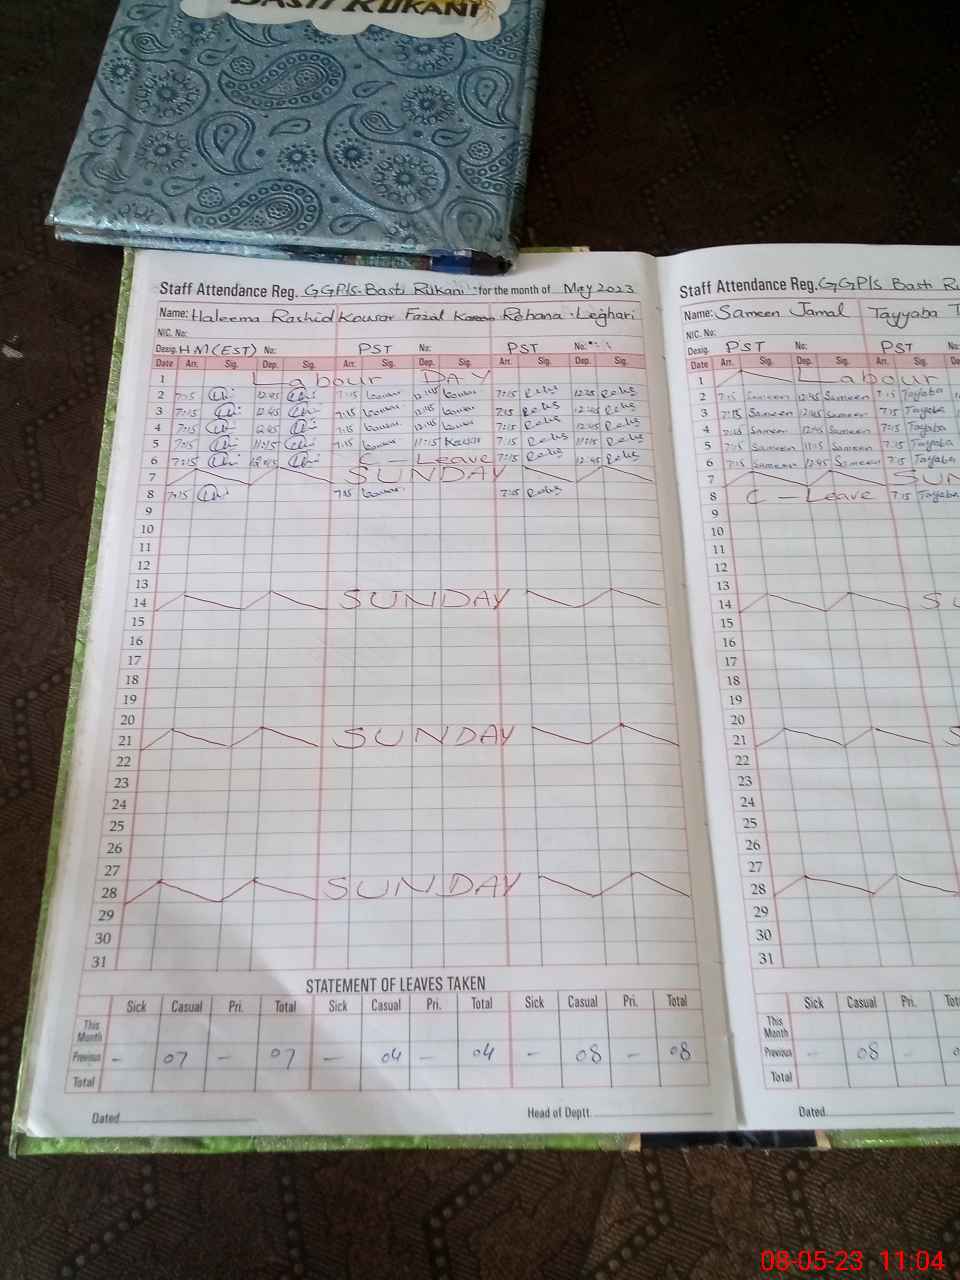 BASTI RUKANI
Staff Attendance Reg. GGPls Basti Rukani for the month of May 2023
Name: Haleema Rashid Kousar Fazal Rehana Leghari
NIC. No:
Desig. HM(EST) No: PST No: PST No:
Date Arr. Sig. Dep. Sig. Arr. Sig. Dep. Sig. Arr. Sig. Dep. Sig.
1 Labour DAY
2 7:15 12:45 7:15 kousar 12:45 kousar 7:15 12:45
3 7:15 12:45 7:15 kousar 12:45 kousar 7:15 12:45
4 7:15 12:45 7:15 kousar 12:45 kousar 7:15 12:45
5 7:15 11:15 7:15 kousar 11:15 kousar 7:15 11:15
6 7:15 12:45 C - Leave 7:15 12:45
7 SUNDAY
8 7:15 7:15 kousar 7:15
9
10
11
12
13
14 SUNDAY
15
16
17
18
19
20
21 SUNDAY
22
23
24
25
26
27
28 SUNDAY
29
30
31
STATEMENT OF LEAVES TAKEN
Sick Casual Pri. Total Sick Casual Pri. Total Sick Casual Pri. Total
This Month
Previous - 07 - 07 - 04 - 04 - 08 - 08
Total
Dated Head of Deptt.
Staff Attendance Reg. GGPls Basti Ru
Name: Sameen Jamal Tayyaba T
NIC. No:
Desig. PST No: PST No
Date Arr. Sig. Dep. Sig. Arr. Sig.
1 Labour
2 7:15 Sameen 12:45 Sameen 7:15 Tayaba
3 7:15 Sameen 12:45 Sameen 7:15 Tayaba
4 7:15 Sameen 12:45 Sameen 7:15 Tayaba
5 7:15 Sameen 11:15 Sameen 7:15 Tayaba
6 7:15 Sameen 12:45 Sameen 7:15 Tayaba
7 SUN
8 C - Leave 7:15 Tayaba
9
10
11
12
13
14 SU
15
16
17
18
19
20
21 S
22
23
24
25
26
27
28
29
30
31
Sick Casual Pri. Tot
This Month
Previous - 08 -
Total
Dated
08-05-23 11:04